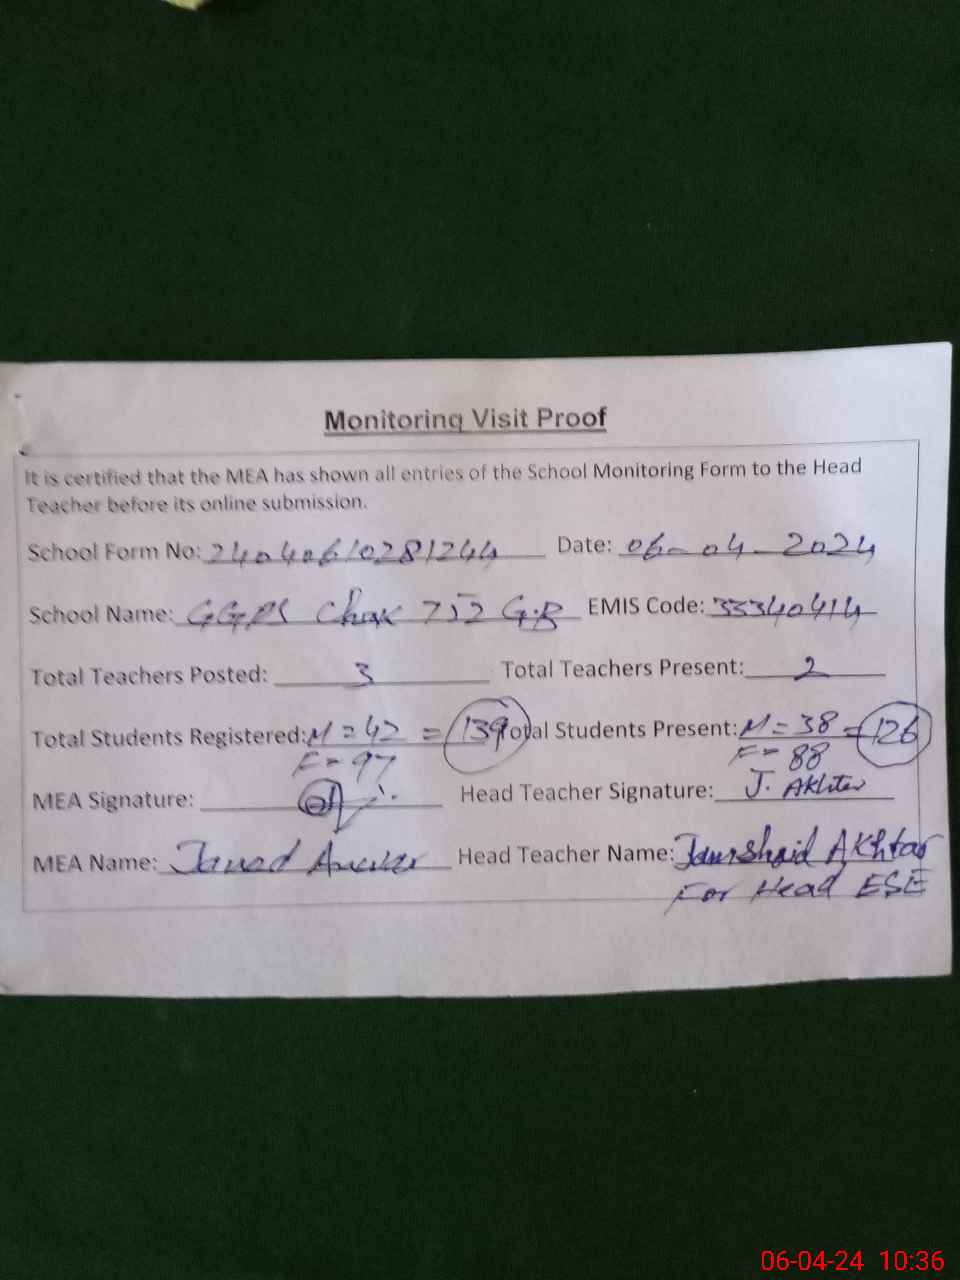 Monitoring Visit Proof
It is certified that the MEA has shown all entries of the School Monitoring Form to the Head
Teacher before its online submission.
School Form No: 24040610281244 Date: 06-04-2024
School Name: GGPS Chak 752 G.B EMIS Code: 33340414
Total Teachers Posted: 3 Total Teachers Present: 2
Total Students Registered: M = 42 = 139 Total Students Present: M = 38 = 126
F = 97 F = 88
MEA Signature: Head Teacher Signature: J. Akhter
MEA Name: Jawad Anwar Head Teacher Name: Jamshaid Akhtar
For Head ESE
06-04-24 10:36